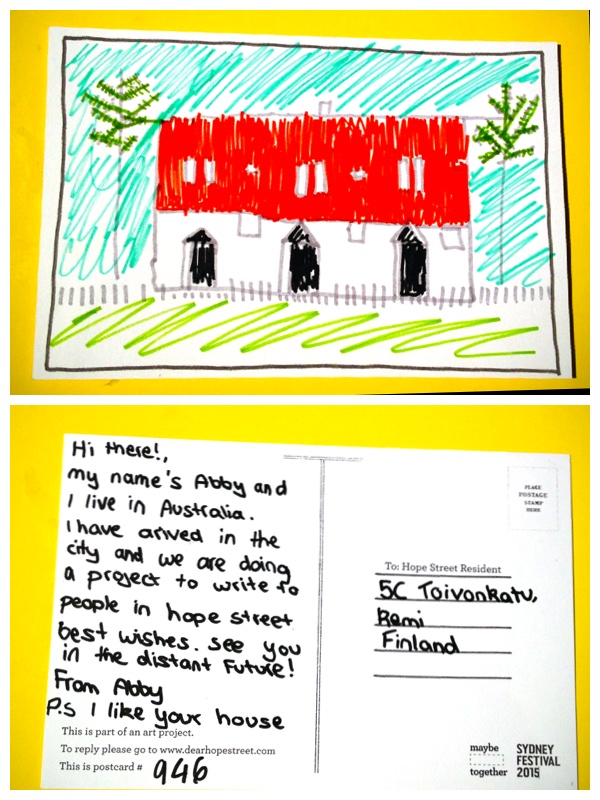 Hi there!,
my name's Abby and
I live in Australia.
I have arived in the
city and we are doing
a project to write to
people in hope street
best wishes. see you
in the distant future!
From Abby
P.S I like your house
This is part of an art project.
To reply please go to www.dearhopestreet.com
This is postcard # 946
PLACE
POSTAGE
STAMP
HERE
To: Hope Street Resident
5C Toivonkatu,
Kemi
Finland
maybe
together
SYDNEY
FESTIVAL
2015